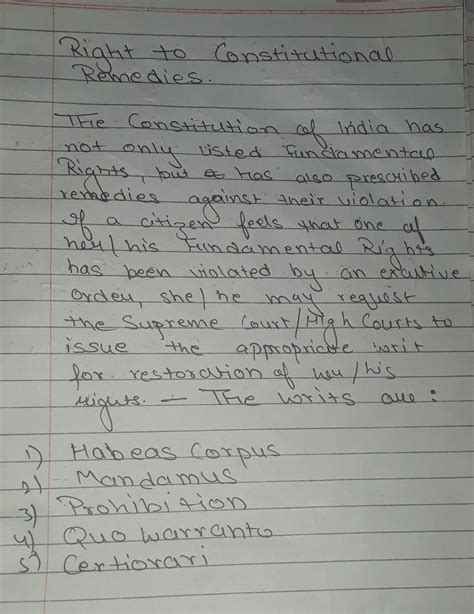 Right to Constitutional
Remedies.
The Constitution of India has
not only listed Fundamental
Rights, but has also prescribed
remedies against their violation.
If a citizen feels that one of
her/his Fundamental Rights
has been violated by an exutive
order, she/he may request
the Supreme Court/High Courts to
issue the appropriate writ
for restoration of her/his
rights. - The writs are:
1) Habeas Corpus
2) Mandamus
3) Prohibition
4) Quo Warranto
5) Certiorari